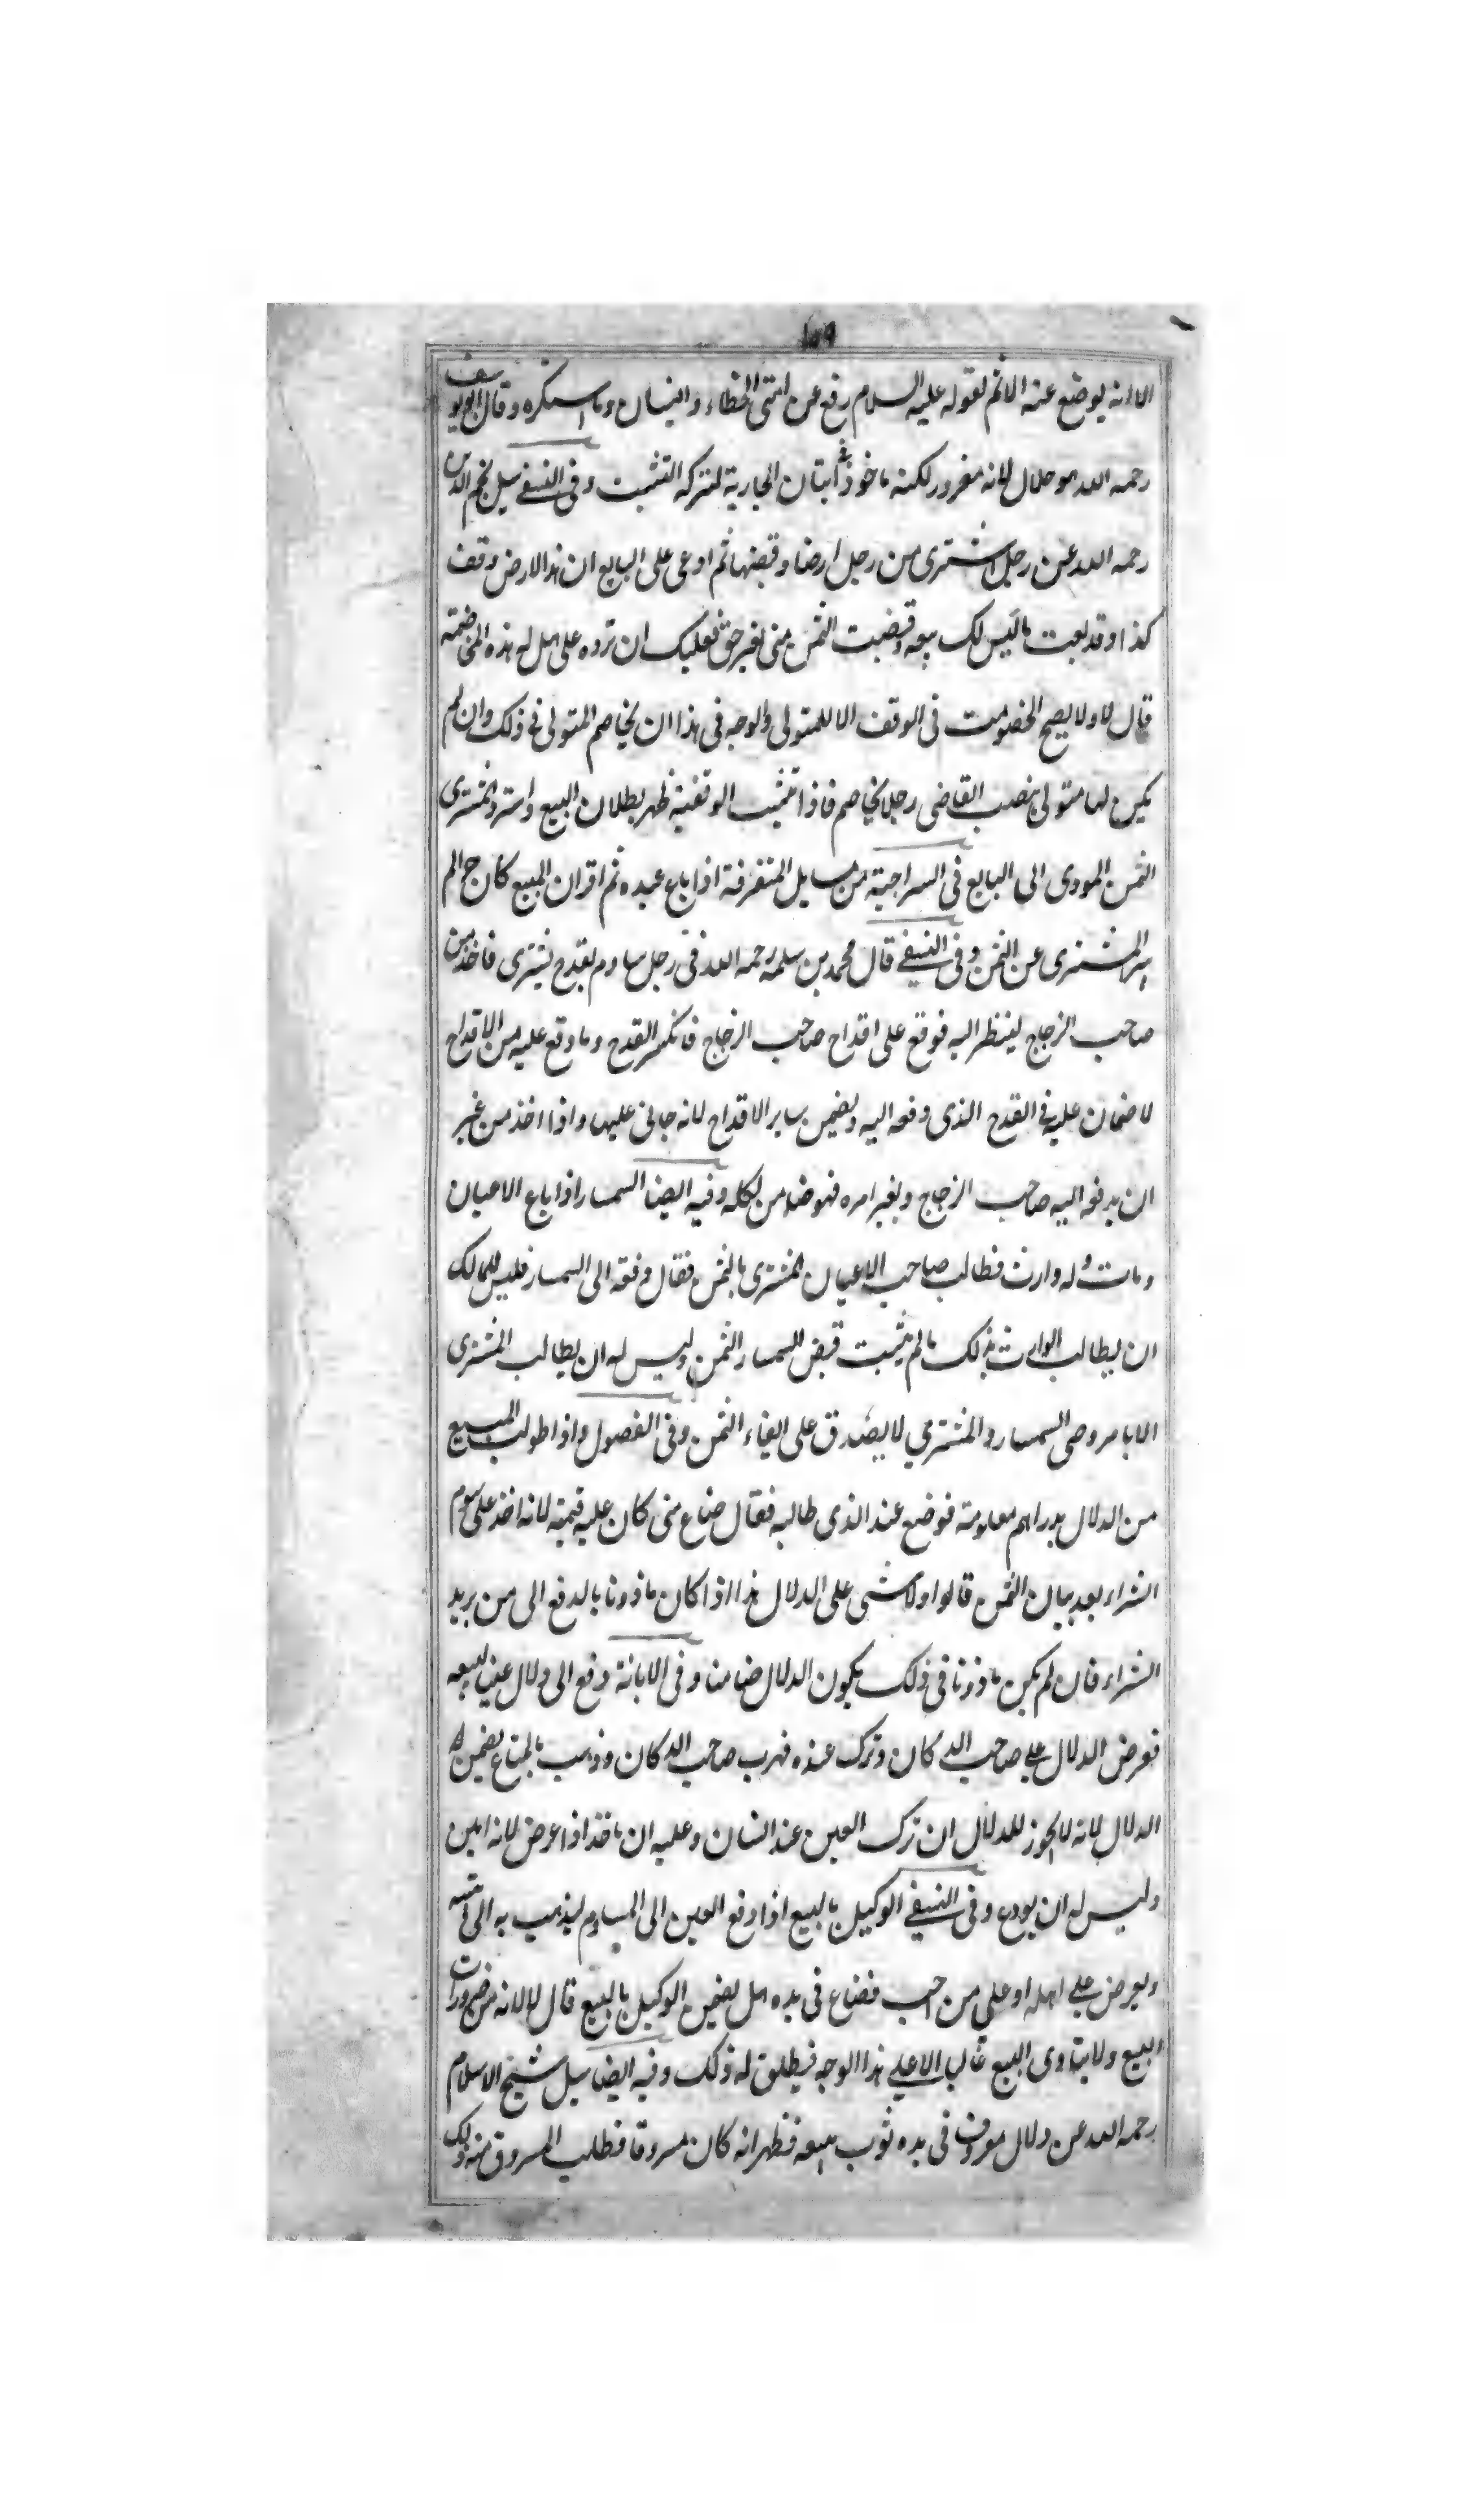 ١٥٩
الا انه يوضع عنه الاثم لقوله عليه السلام رفع عن امتى الخطاء والنسيان وما استكره وقال ابو يوسف
رحمه الله هو حلال لانه مغرور لكنه ماخوذ فى اتيان الجارية لتركه التثبت وفى النسفے سيل نجم الدين
رحمه الله عن رجل اشترى من رجل ارضا وقبضها ثم ادعى على البايع ان هذا الارض وقف
كذا وقد بعت ما ليس لك بيعه وقبضت الثمن منى بغير حق فعليك ان ترده على هل له هذه المخاصمة
قال لا ولا يصح الخصومت فى الوقف الا للمتولى والوجه فى هذا ان يخاصم المتولى فى ذلك وان لم
يكن لها متولى ينصب القاضى رجلا يخاصم فاذا تثبت الوقفية ظهر بطلان البيع واسترد المشترى
الثمن المودى الى البايع فى السراجية من مسايل المتفرقة اذا باع عبده ثم اقر ان المبيع كان ج الم
المشترى عن الثمن وفى النسفے قال محمد بن سلمه رحمه الله فى رجل ساوم بقدح يشترى فاخذ من
صاحب الزجاج لينظر اليه فوقع على اقداح صاحب الزجاج فانكسر القدح وما وقع عليه من الاقداح
لا ضمان عليه فى القدح الذى دفعه اليه ويضمن ساير الاقداح لانه جانى عليها واذا اخذ من غير
ان يدفعه اليه صاحب الزجاج وبغير امره فهو ضامن لكله وفيه ايضا السمسار اذا باع الاعيان
ومات وله وارث فطالب صاحب الاعيان المشترى بالثمن فقال دفعته الى السمسار فليس للمالك
ان يطالب الوارث بذلك ما لم يثبت قبض السمسار الثمن وليس له ان يطالب المشترى
الا بامر وصى السمسار والمشترى لا يصدق على ايفاء الثمن وفى الفصول واذا طولب المبيع
من الدلال بدراهم معلومة فوضع عند الذى طالبه فقال ضاع منى كان عليه قيمته لانه اخذ على سوم
الشراء بعد بيان الثمن قالوا ولا شى على الدلال هذا اذا كان ماذونا بالدفع الى من يريد
الشراء فان لم يكن ماذونا فى ذلك يكون الدلال ضامنا وفى الابانة دفع الى دلال عينا ليبيعه
فعرض الدلال على صاحب الدكان وترك عنده فهرب صاحب الدكان وذهب بالمتاع يضمن
الدلال لانه لا يجوز للدلال ان ترك العين عند انسان وعليه ان ياخذ اذا عرض لانه امين
وليس له ان يودع وفى النسفے الوكيل بالبيع اذا دفع العين الى المساوم ليذهب به الى بيته
ويعرض على اهله او على من احب فضاع فى يده هل يضمن الوكيل بالبيع قال لا لانه من ضرورات
البيع ولا يتاوى البيع غالبا الا على هذا الوجه فيطلق له ذلك وفيه ايضا سيل شيخ الاسلام
رحمه الله عن دلال معروف فى يده ثوب يبيعه فظهر انه كان مسروقا فطلب المسروق منه ذلك